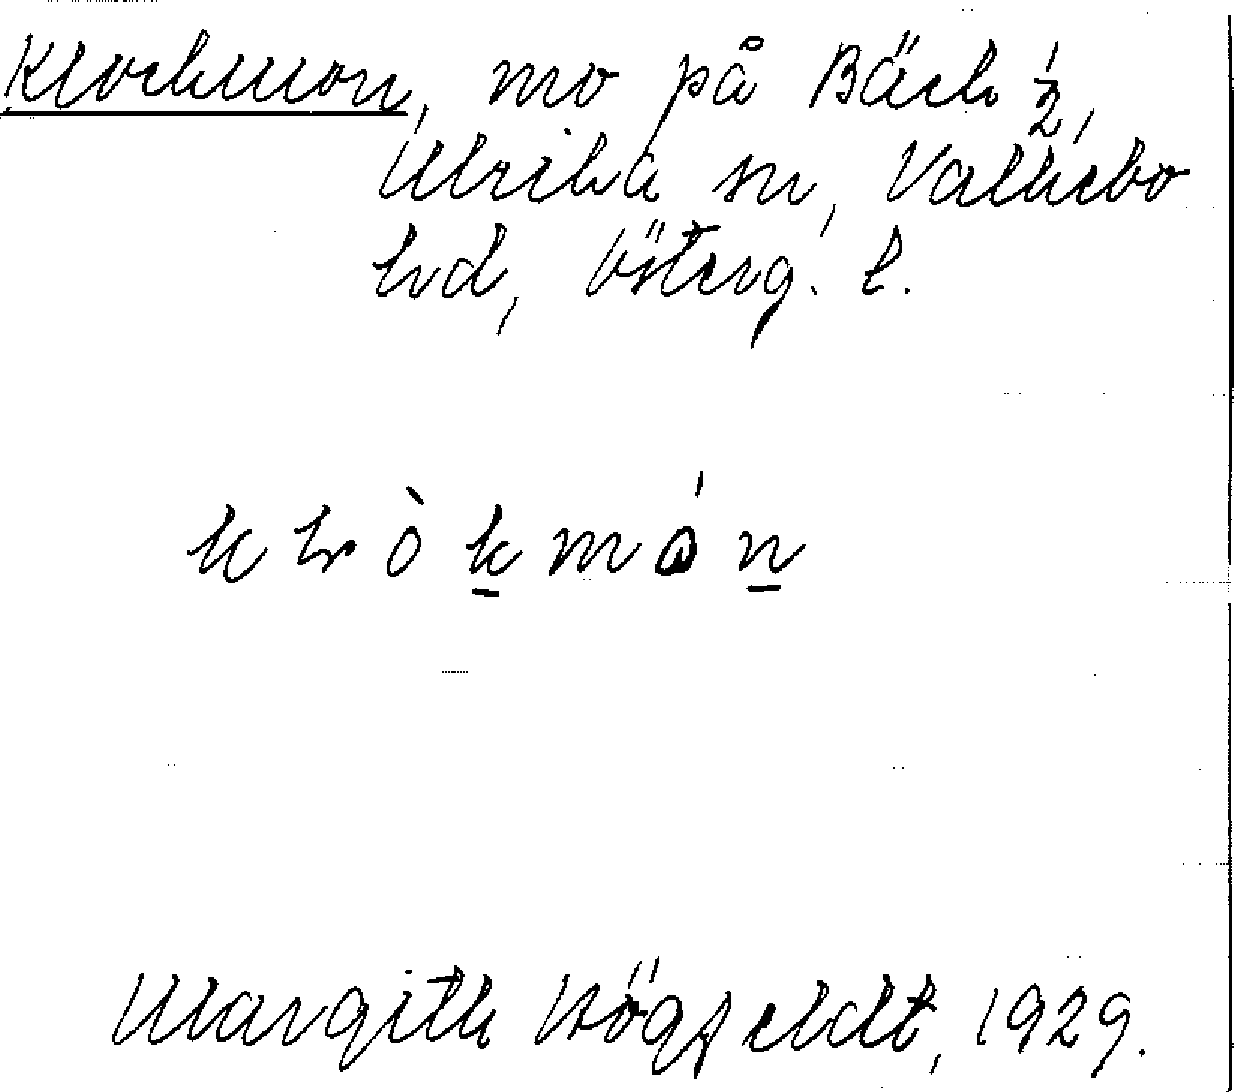 Klockmon, mo på Bäck 1/2,
Ulrika sn, Valkebo
hd, Österg. l.
k l ò k m ó n
Margith Högfeldt, 1929.